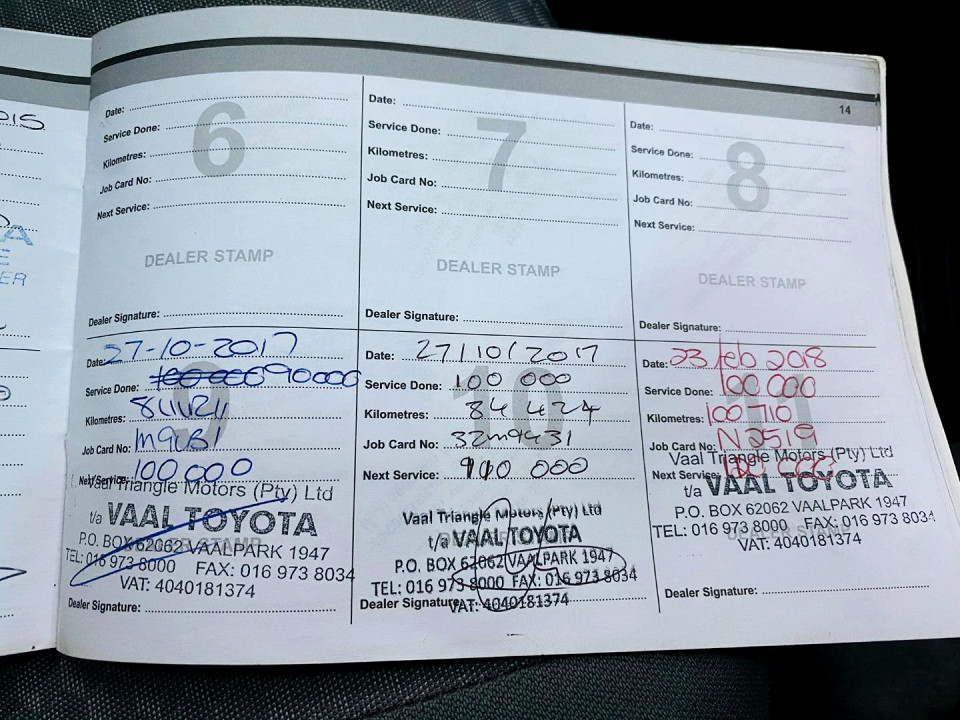 015
14
6
Date:
Service Done:
Kilometres:
Job Card No:
Next Service:
DEALER STAMP
Dealer Signature:
7
Date:
Service Done:
Kilometres:
Job Card No:
Next Service:
DEALER STAMP
Dealer Signature:
8
Date:
Service Done:
Kilometres:
Job Card No:
Next Service:
DEALER STAMP
Dealer Signature:
9
Date: 27-10-2017
Service Done: 90000
Kilometres:
Job Card No:
Next Service: 100 000
Vaal Triangle Motors (Pty) Ltd
t/a VAAL TOYOTA
DEALER STAMP
P.O. BOX 62062 VAALPARK 1947
TEL: 016 973 8000 FAX: 016 973 8034
VAT: 4040181374
Dealer Signature:
10
Date: 27/10/2017
Service Done: 100 000
Kilometres: 84 424
Job Card No: 32m9431
Next Service: 000
Vaal Triangle Motors (Pty) Ltd
t/a VAAL TOYOTA
P.O. BOX 62062 VAALPARK 1947
TEL: 016 973 8000 FAX: 016 973 8034
VAT: 4040181374
Dealer Signature:
11
Date: 23 feb 2018
Service Done: 100 000
Kilometres: 100 710
Job Card No: N2519
Next Service:
Vaal Triangle Motors (Pty) Ltd
t/a VAAL TOYOTA
P.O. BOX 62062 VAALPARK 1947
TEL: 016 973 8000 FAX: 016 973 8034
DEALER STAMP
VAT: 4040181374
Dealer Signature: